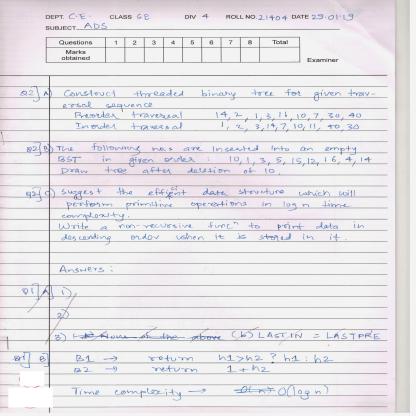 DEPT. C.E. CLASS GB DIV 4 ROLL NO. 21404 DATE 29.01.19
SUBJECT ADS
Questions 1 2 3 4 5 6 7 8 Total
Marks obtained
Examiner
Q2] A) Construct threaded binary tree for given trav-
ersal sequence
Preorder traversal 14, 2, 1, 3, 11, 10, 7, 30, 40
Inorder traversal 1, 2, 3, 14, 7, 10, 11, 40, 30
Q2] B) The following nos are inserted into an empty
BST in given order : 10, 1, 3, 5, 15, 12, 16, 4, 14
Draw tree after deletion of 10.
Q2] C) Suggest the efficient data structure which will
perform primitive operations in log n time
complexity.
Write a non-recursive funcn to print data in
descending order when it is stored in it.
Answers :
Q1] A] 1)
2)
3) None of the above (b) LAST.IN = LASTPRE
Q1] B] B1 → return h1>h2 ? h1 : h2
B2 → return 1 + h2
Time complexity → O(log n)